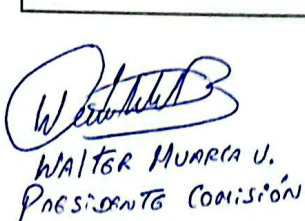 WALTER MUARCA V.
PRESIDENTE COMISIÓN